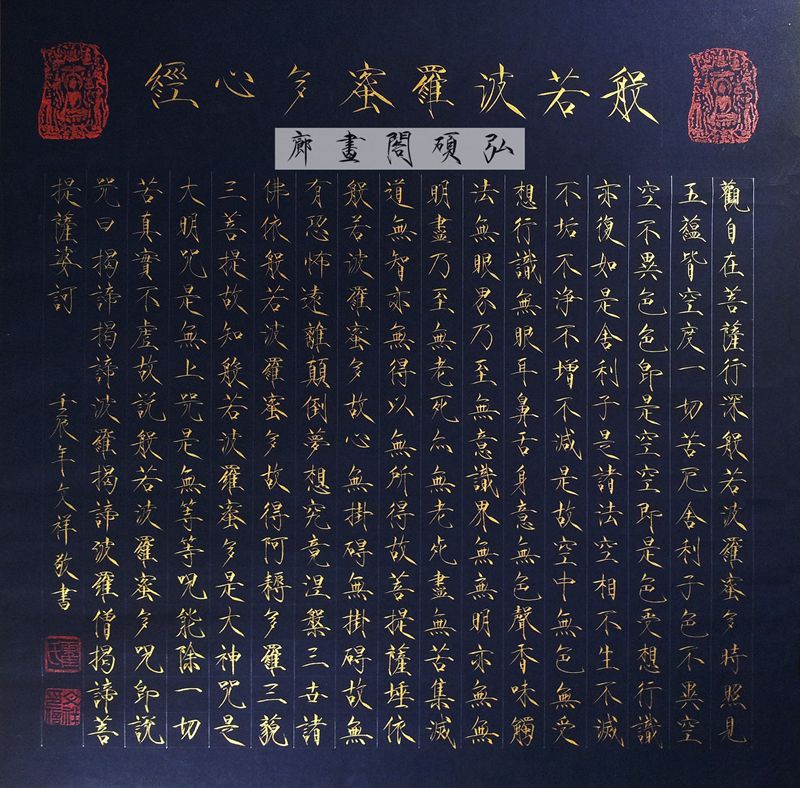 般若波羅蜜多心經
弘碩閣畫廊
觀自在菩薩行深般若波羅蜜多時照見
五蘊皆空度一切苦厄舍利子色不異空
空不異色色即是空空即是色受想行識
亦復如是舍利子是諸法空相不生不滅
不垢不淨不增不減是故空中無色無受
想行識無眼耳鼻舌身意無色聲香味觸
法無眼界乃至無意識界無無明亦無無
明盡乃至無老死亦無老死盡無苦集滅
道無智亦無得以無所得故菩提薩埵依
般若波羅蜜多故心無掛碍無掛碍故無
有恐怖遠離顛倒夢想究竟涅槃三世諸
佛依般若波羅蜜多故得阿耨多羅三藐
三菩提故知般若波羅蜜多是大神咒是
大明咒是無上咒是無等等呪能除一切
苦真實不虛故說般若波羅蜜多呪即說
咒曰揭諦揭諦波羅揭諦波羅僧揭諦菩
提薩婆訶 壬辰年文祥敬書